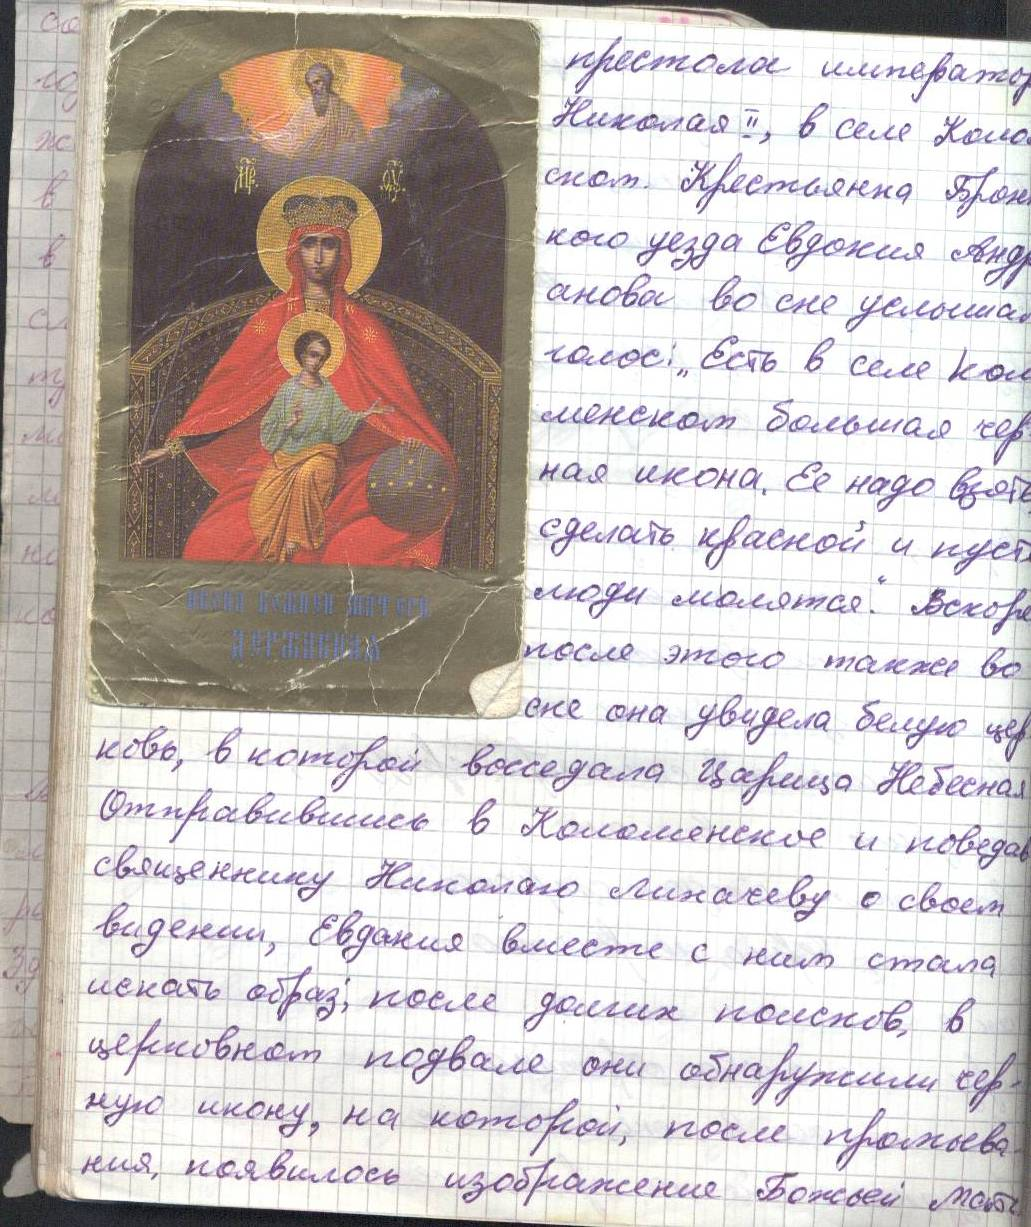 М҃Р. Ѳ҃У.
ИКОНА БОЖИЕЙ МАТЕРИ
ДЕРЖАВНАЯ
престола императо
Николая II, в селе Коло
ском. Крестьянка Брон
кого уезда Евдокия Андр
анова во сне услышал
голос: „Есть в селе Коло
менском большая чер
ная икона. Ее надо взять
сделать красной и пусть
люди молятся." Вскоре
после этого также во
сне она увидела белую цер
ковь, в которой восседала Царица Небесная
Отправившись в Коломенское и поведав
священнику Николаю Лихачеву о своем
видении, Евдакия вместе с ним стала
искать образ; после долгих поисков, в
церковном подвале они обнаружили чер-
ную икону, на которой, после промыва-
ния, появилось изображение Божьей Мате